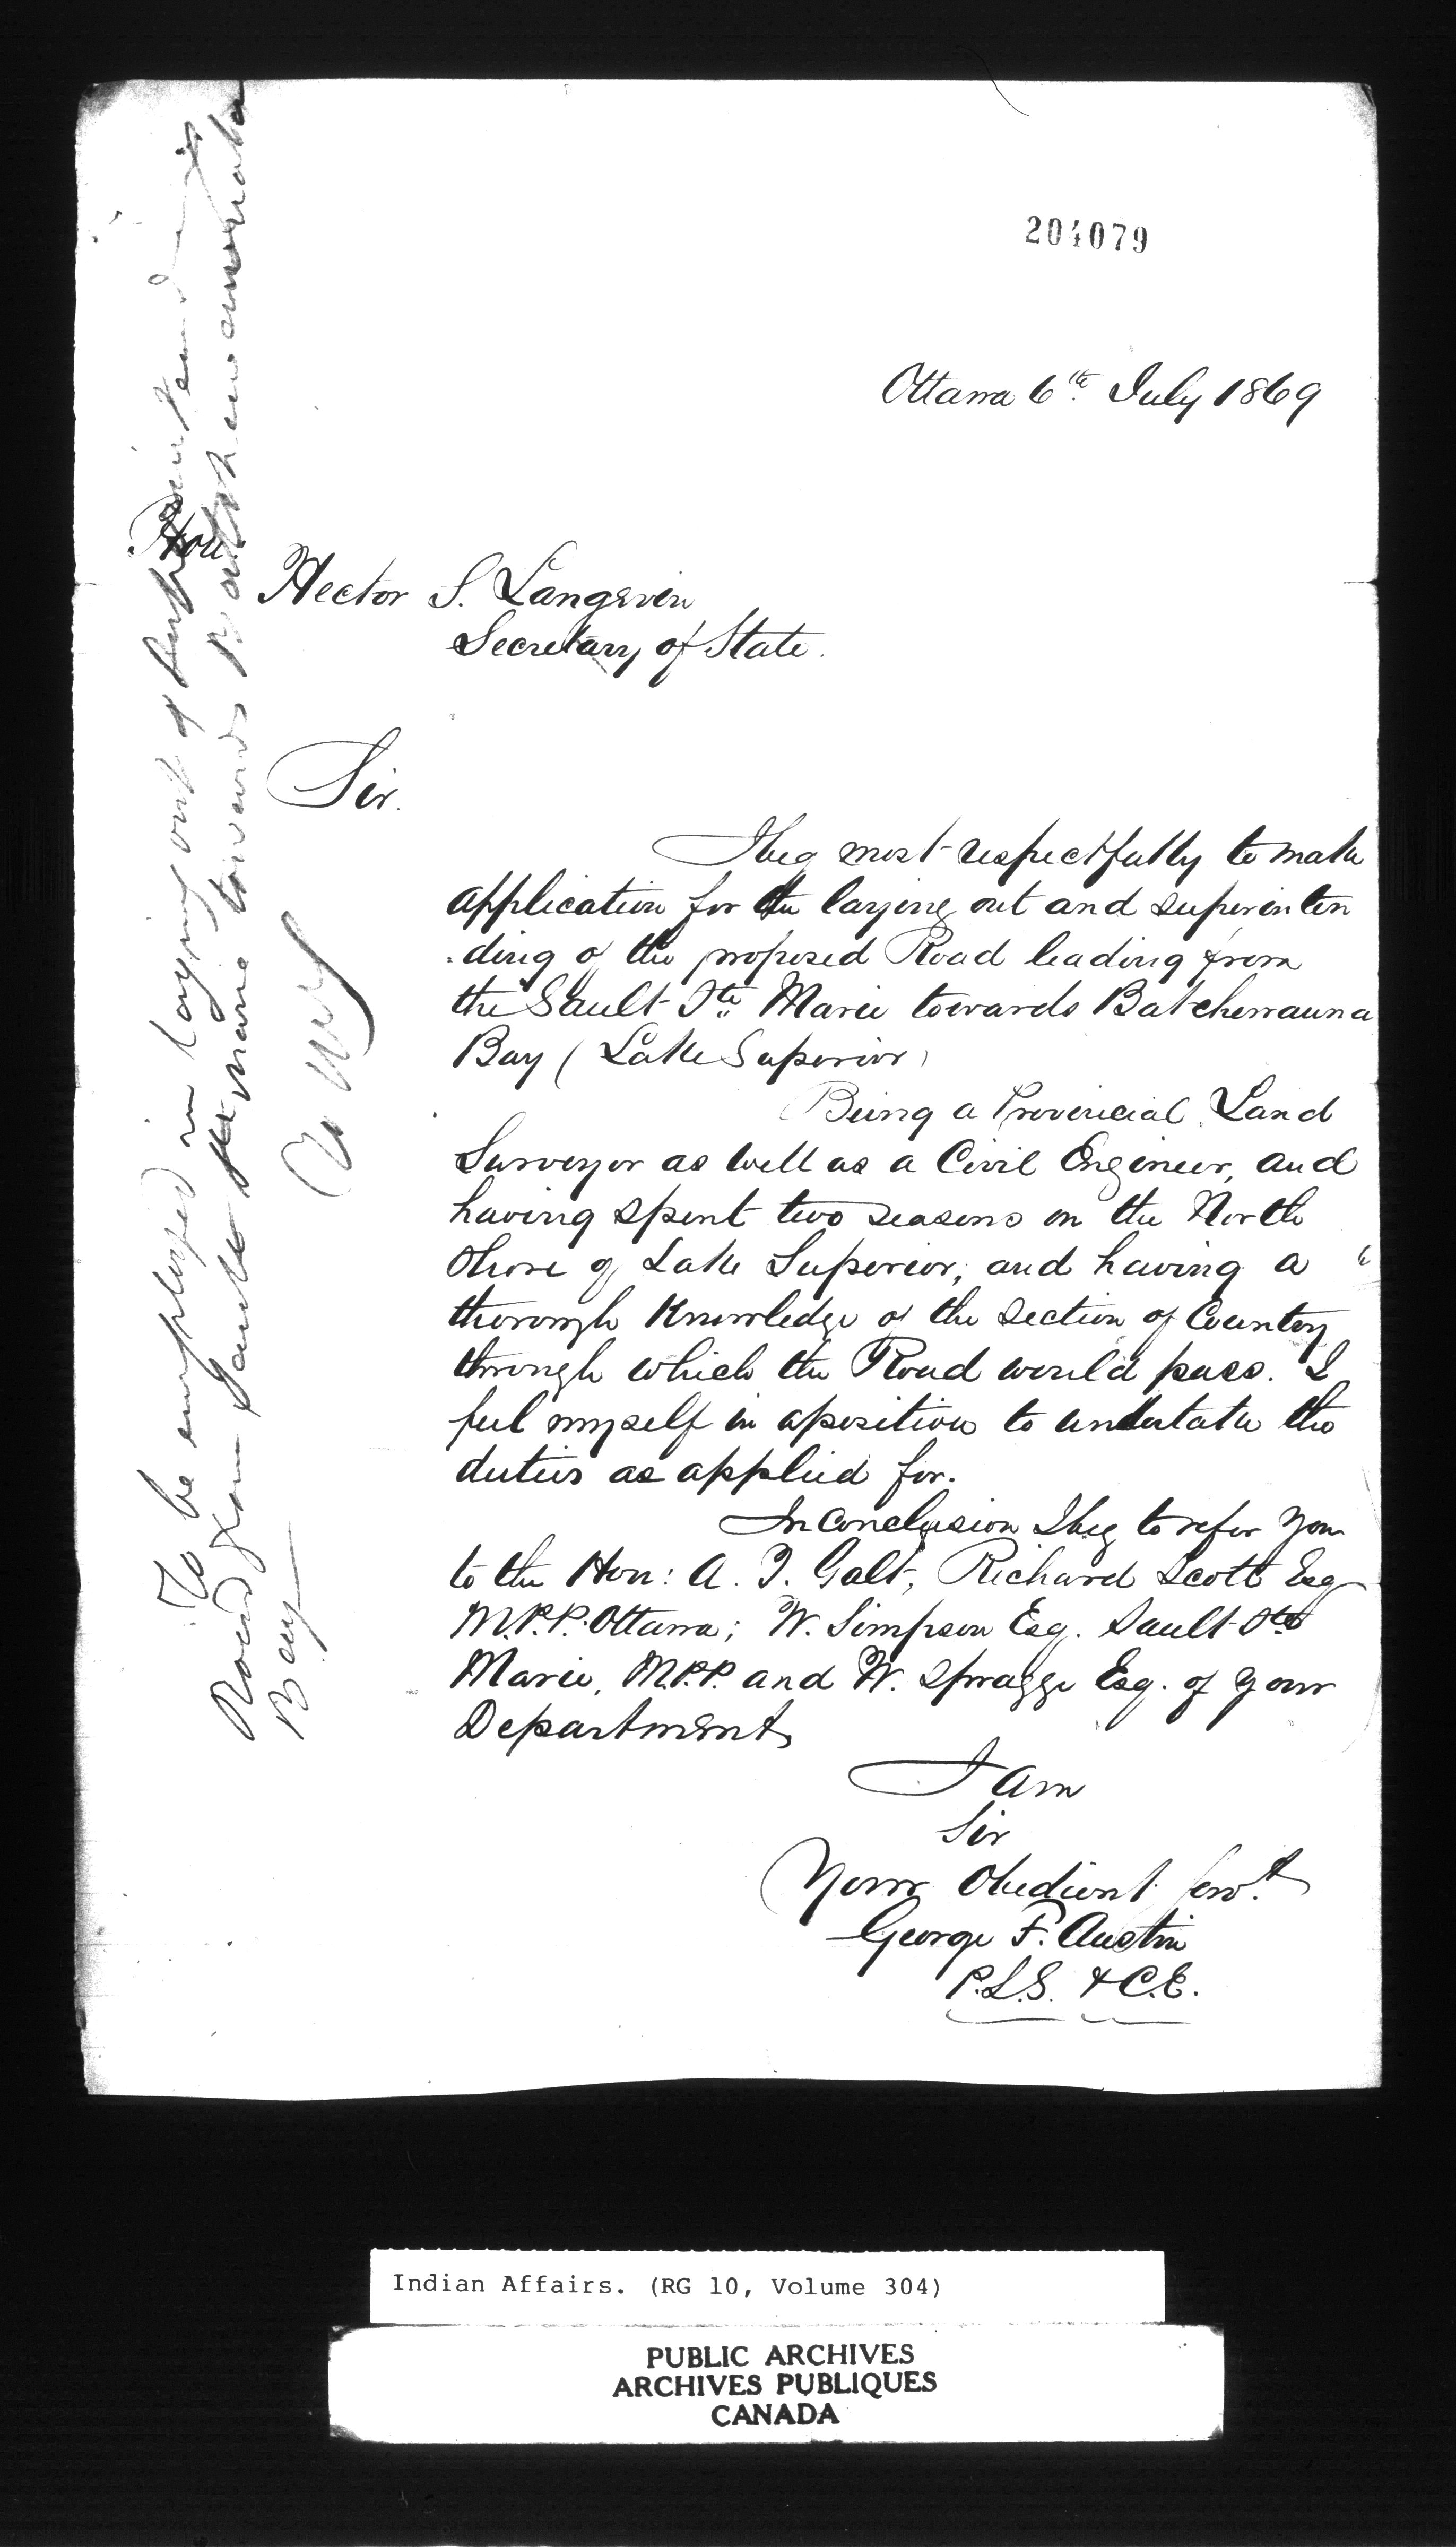 204079
Ottawa 6th July 1869
Hon
Hector S. Langevin
Secretary of State.
Sir.
I beg most respectfully to make
application for the laying out and superinten
-ding of the proposed Road leading from
the Sault Ste Marie towards Batchewauna
Bay (Lake Superior)
Being a Provincial Land
Surveyor as well as a Civil Engineer, and
having spent two seasons on the North
Shore of Lake Superior, and having a
thorough Knowledge of the section of Country
through which the Road would pass. I
feel myself in a position to undertake the
duties as applied for.
In Conclusion I beg to refer you
to the Hon: A. T. Galt, Richard Scott Esq
M.P.P. Ottawa; W. Simpson Esq. Sault Ste
Marie, M.P.P. and W. Spragge Esq. of your
Department,
I am
Sir
Your Obedient Servt
George F. Austin
P.L.S. & C.E.
To be employed in laying out & superintending
Road from Saulte Ste Marie towards Batchewanauba
Bay
Indian Affairs. (RG 10, Volume 304)
PUBLIC ARCHIVES
ARCHIVES PUBLIQUES
CANADA